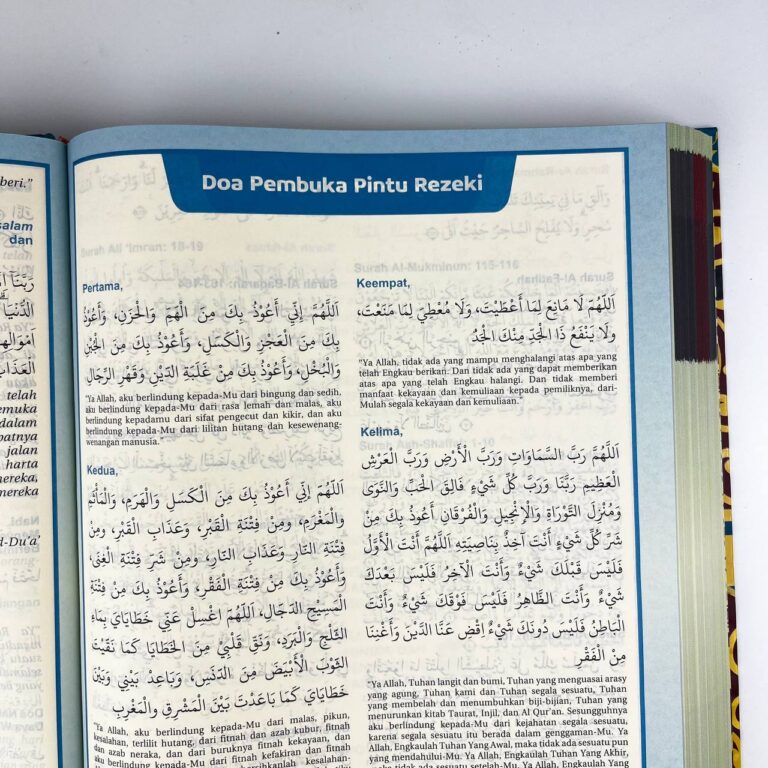 beri."
salam
dan
telah
emuka
dalam
patnya
jalan
harta
mereka,
mereka
d-Du'a'
Doa Pembuka Pintu Rezeki
Pertama,
اَللّٰهُمَّ إِنِّي أَعُوْذُ بِكَ مِنَ الْهَمِّ وَالْحَزَنِ، وَأَعُوْذُ
بِكَ مِنَ الْعَجْزِ وَالْكَسَلِ، وَأَعُوْذُ بِكَ مِنَ الْجُبْنِ
وَالْبُخْلِ، وَأَعُوْذُ بِكَ مِنْ غَلَبَةِ الدَّيْنِ وَقَهْرِ الرِّجَالِ
"Ya Allah, aku berlindung kepada-Mu dari bingung dan sedih,
aku berlindung kepada-Mu dari rasa lemah dan malas, aku
berlindung kepadamu dari sifat pengecut dan kikir, dan aku
berlindung kepada-Mu dari lilitan hutang dan kesewenang-
wenangan manusia."
Kedua,
اَللّٰهُمَّ إِنِّي أَعُوْذُ بِكَ مِنَ الْكَسَلِ وَالْهَرَمِ، وَالْمَأْثَمِ
وَالْمَغْرَمِ، وَمِنْ فِتْنَةِ الْقَبْرِ، وَعَذَابِ الْقَبْرِ، وَمِنْ
فِتْنَةِ النَّارِ وَعَذَابِ النَّارِ، وَمِنْ شَرِّ فِتْنَةِ الْغِنَى،
وَأَعُوْذُ بِكَ مِنْ فِتْنَةِ الْفَقْرِ، وَأَعُوْذُ بِكَ مِنْ فِتْنَةِ
الْمَسِيْحِ الدَّجَّالِ، اَللّٰهُمَّ اغْسِلْ عَنِّي خَطَايَايَ بِمَاءِ
الثَّلْجِ وَالْبَرَدِ، وَنَقِّ قَلْبِيْ مِنَ الْخَطَايَا كَمَا نَقَّيْتَ
الثَّوْبَ الْأَبْيَضَ مِنَ الدَّنَسِ، وَبَاعِدْ بَيْنِيْ وَبَيْنَ
خَطَايَايَ كَمَا بَاعَدْتَ بَيْنَ الْمَشْرِقِ وَالْمَغْرِبِ
"Ya Allah, aku berlindung kepada-Mu dari malas, pikun,
kesalahan, terlilit hutang, dari fitnah dan azab kubur, fitnah
dan azab neraka, dan dari buruknya fitnah kekayaan, dan
aku berlindung kepada-Mu dari fitnah kefakiran dan fitnah
Keempat,
اَللّٰهُمَّ لَا مَانِعَ لِمَا أَعْطَيْتَ، وَلَا مُعْطِيَ لِمَا مَنَعْتَ،
وَلَا يَنْفَعُ ذَا الْجَدِّ مِنْكَ الْجَدُّ
"Ya Allah, tidak ada yang mampu menghalangi atas apa yang
telah Engkau berikan. Dan tidak ada yang dapat memberikan
atas apa yang telah Engkau halangi. Dan tidak memberi
manfaat kekayaan dan kemuliaan kepada pemiliknya, dari-
Mulah segala kekayaan dan kemuliaan."
Kelima,
اَللّٰهُمَّ رَبَّ السَّمَاوَاتِ وَرَبَّ الْأَرْضِ وَرَبَّ الْعَرْشِ
الْعَظِيْمِ رَبَّنَا وَرَبَّ كُلِّ شَيْءٍ فَالِقَ الْحَبِّ وَالنَّوَى
وَمُنْزِلَ التَّوْرَاةِ وَالْإِنْجِيْلِ وَالْفُرْقَانِ أَعُوْذُ بِكَ مِنْ
شَرِّ كُلِّ شَيْءٍ أَنْتَ آخِذٌ بِنَاصِيَتِهِ اَللّٰهُمَّ أَنْتَ الْأَوَّلُ
فَلَيْسَ قَبْلَكَ شَيْءٌ وَأَنْتَ الْآخِرُ فَلَيْسَ بَعْدَكَ
شَيْءٌ وَأَنْتَ الظَّاهِرُ فَلَيْسَ فَوْقَكَ شَيْءٌ وَأَنْتَ
الْبَاطِنُ فَلَيْسَ دُوْنَكَ شَيْءٌ اِقْضِ عَنَّا الدَّيْنَ وَأَغْنِنَا
مِنَ الْفَقْرِ
"Ya Allah, Tuhan langit dan bumi, Tuhan yang menguasai arasy
yang agung, Tuhan kami dan Tuhan segala sesuatu, Tuhan
yang membelah dan menumbuhkan biji-bijian, Tuhan yang
menurunkan kitab Taurat, Injil, dan Al Qur'an. Sesungguhnya
aku berlindung kepada-Mu dari kejahatan segala sesuatu,
karena segala sesuatu itu berada dalam genggaman-Mu. Ya
Allah, Engkaulah Tuhan Yang Awal, maka tidak ada sesuatu pun
yang mendahului-Mu. Ya Allah, Engkaulah Tuhan Yang Akhir,
maka tidak ada sesuatu setelah-Mu. Ya Allah, Engkaulah Yang